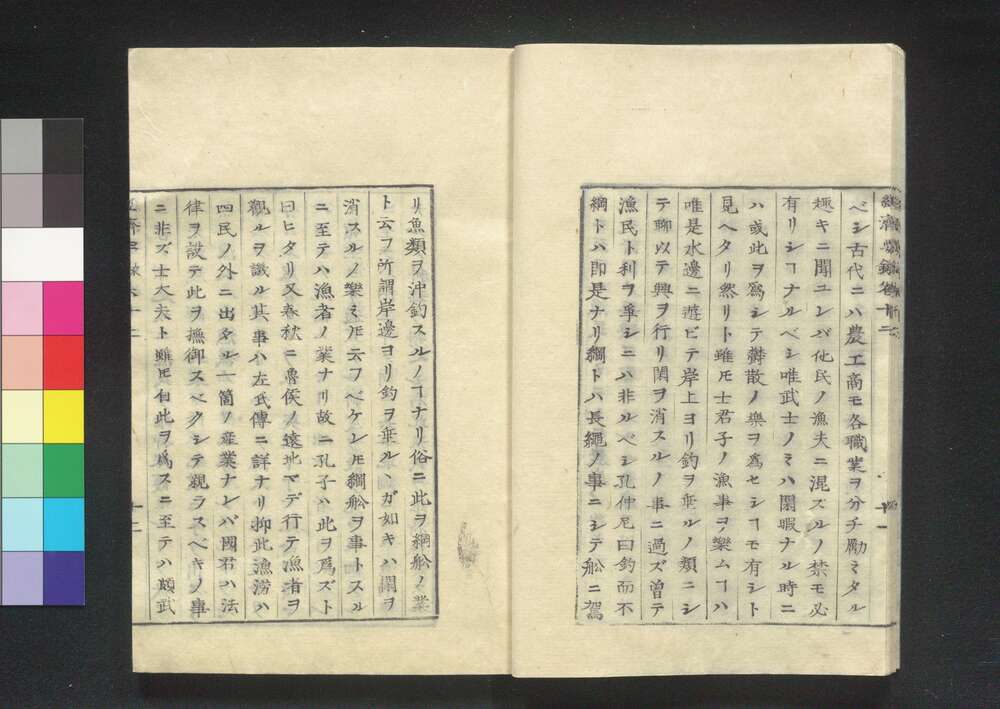 經濟要錄卷十二
十一
ベシ古代ニハ農工商モ各職業ヲ分チ勵ミタル
趣キニ聞ユレバ他民ノ漁夫ニ混ズルノ禁モ必
有リシヿナルベシ唯武士ノミハ閑暇ナル時ニ
ハ或此ヲ爲シテ欝散ノ樂ヲ爲セシヿモ有シト
見ヘタリ然リト雖モ士君子ノ漁事ヲ樂ムヿハ
唯是水邊ニ遊ビテ岸上ヨリ釣ヲ垂ルノ類ニシ
テ聊以テ興ヲ行リ閑ヲ消スルノ事ニ過ズ曾テ
漁民ト利ヲ爭シニハ非ルベシ孔仲尼曰釣而不
綱トハ即是ナリ綱トハ長繩ノ事ニシテ舩ニ駕
リ魚類ヲ沖釣スルノヿナリ俗ニ此ヲ綱舩ノ業
ト云フ所謂岸邊ヨリ釣ヲ垂ルヽガ如キハ閑ヲ
消スルノ樂ミ𪜈云フベケレ𪜈綱舩ヲ事トスル
ニ至テハ漁者ノ業ナリ故ニ孔子ハ此ヲ爲ズト
曰ヒタリ又春秋ニ魯侯ノ遠地マデ行テ漁者ヲ
觀ルヲ譏ル其事ハ左氏傳ニ詳ナリ抑此漁澇ハ
四民ノ外ニ出タル一箇ノ產業ナレバ國君ハ法
律ヲ設テ此ヲ撫御スベクシテ親ラスベキノ事
ニ非ズ士大夫ト雖𪜈自此ヲ爲スニ至テハ頗武